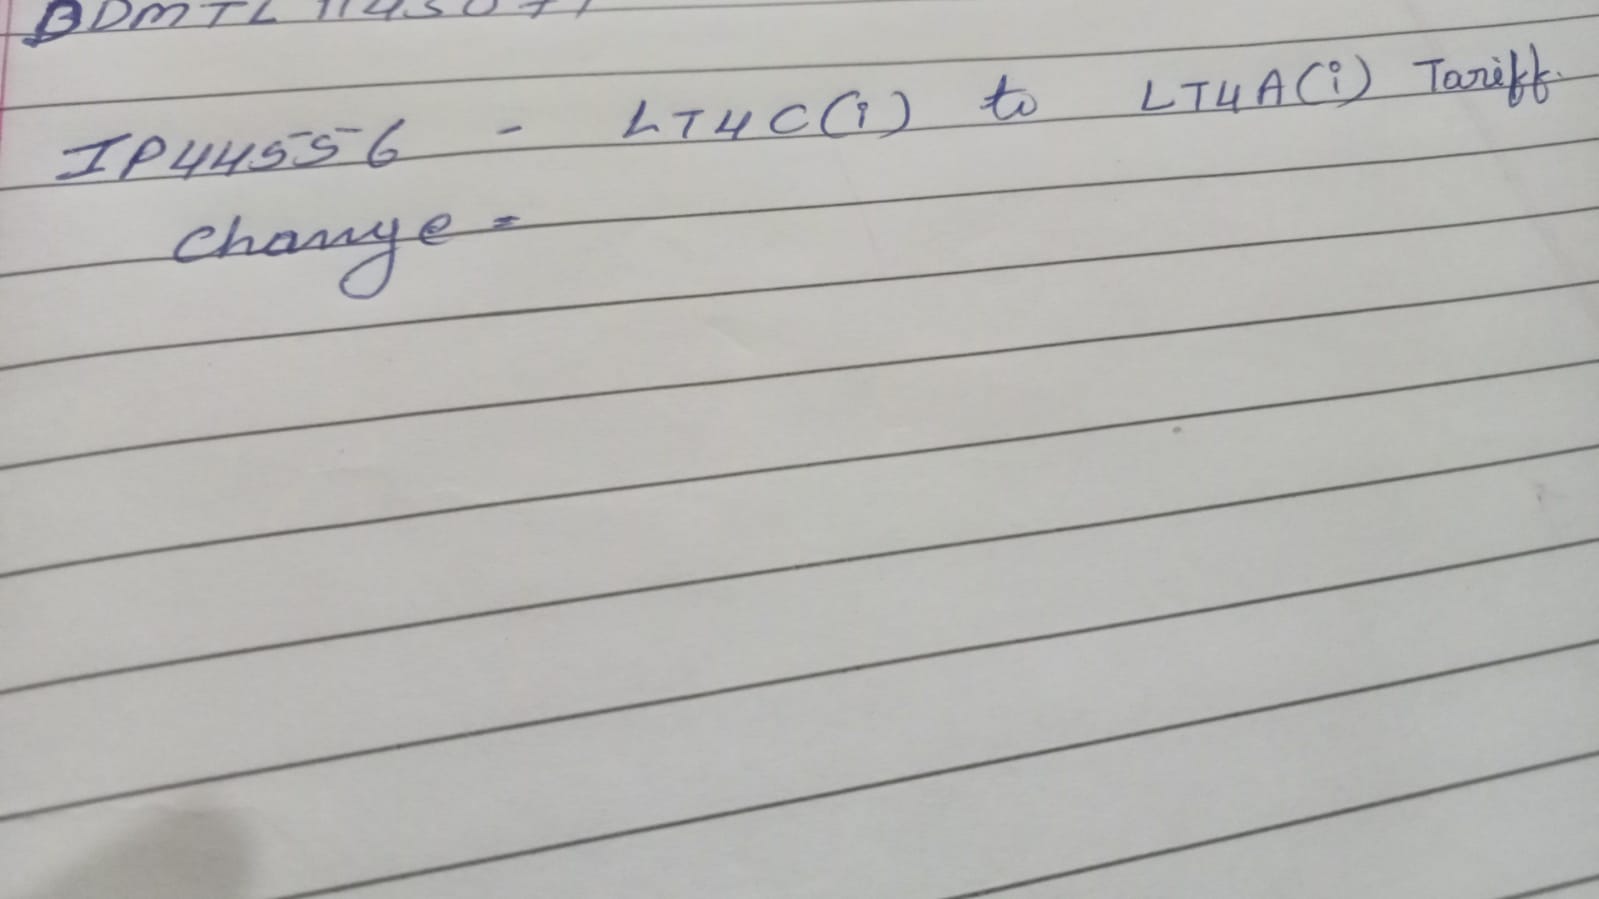 BDMTL
IP44556 - LT4C(i) to LT4A(i) Tariff.
change =